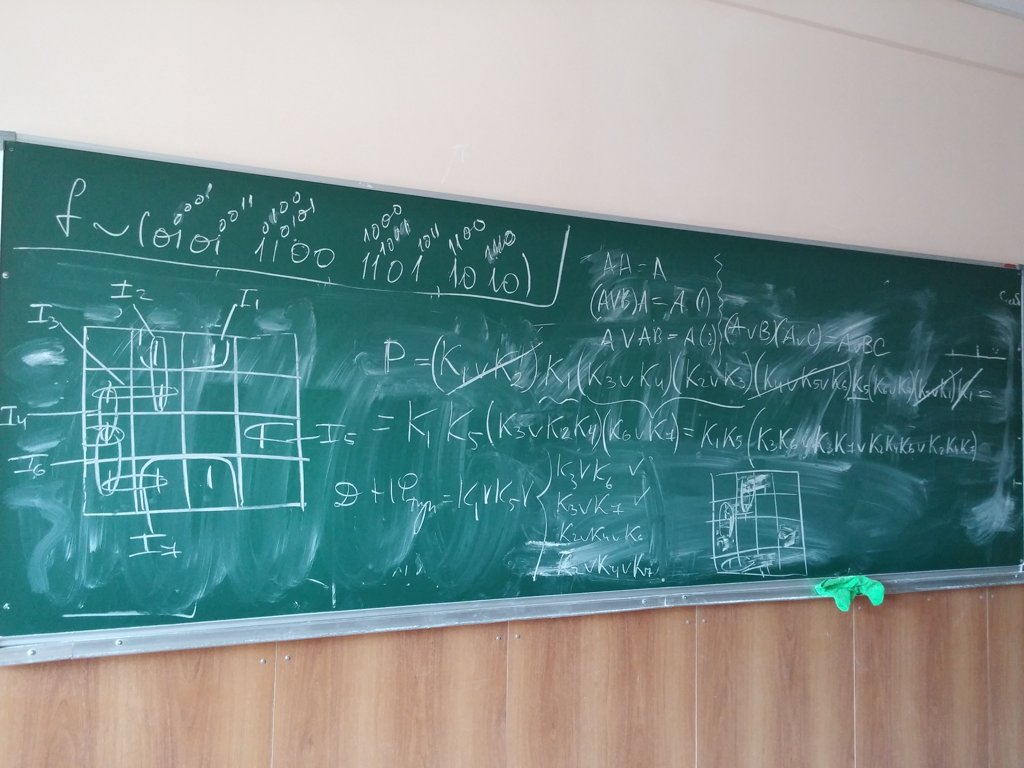 f ~ (0101 1100 1101 1010)
0001 0011 0100 0101 1000 1001 1011 1100 1110
I₃ I₂ I₁
I₄ I₅
I₆
I₇
1
AA = A
(A∨B)A = A (1)
A∨AB = A (2) (A∨B)(A∨C) = A∨BC
P = (K₁∨K₂) K₁ (K₃∨K₄)(K₂∨K₃)(K₄∨K₅∨K₆) K₅
= K₁K₅(K₃∨K₂K₄)(K₆∨K₇) = K₁K₅(K₃K₆∨K₃K₇∨K₂K₄K₆∨K₂K₄K₇)
= K₁∨K₅∨
K₃∨K₆ ✓
K₃∨K₇ ✓
K₂∨K₄∨K₆
K₂∨K₄∨K₇